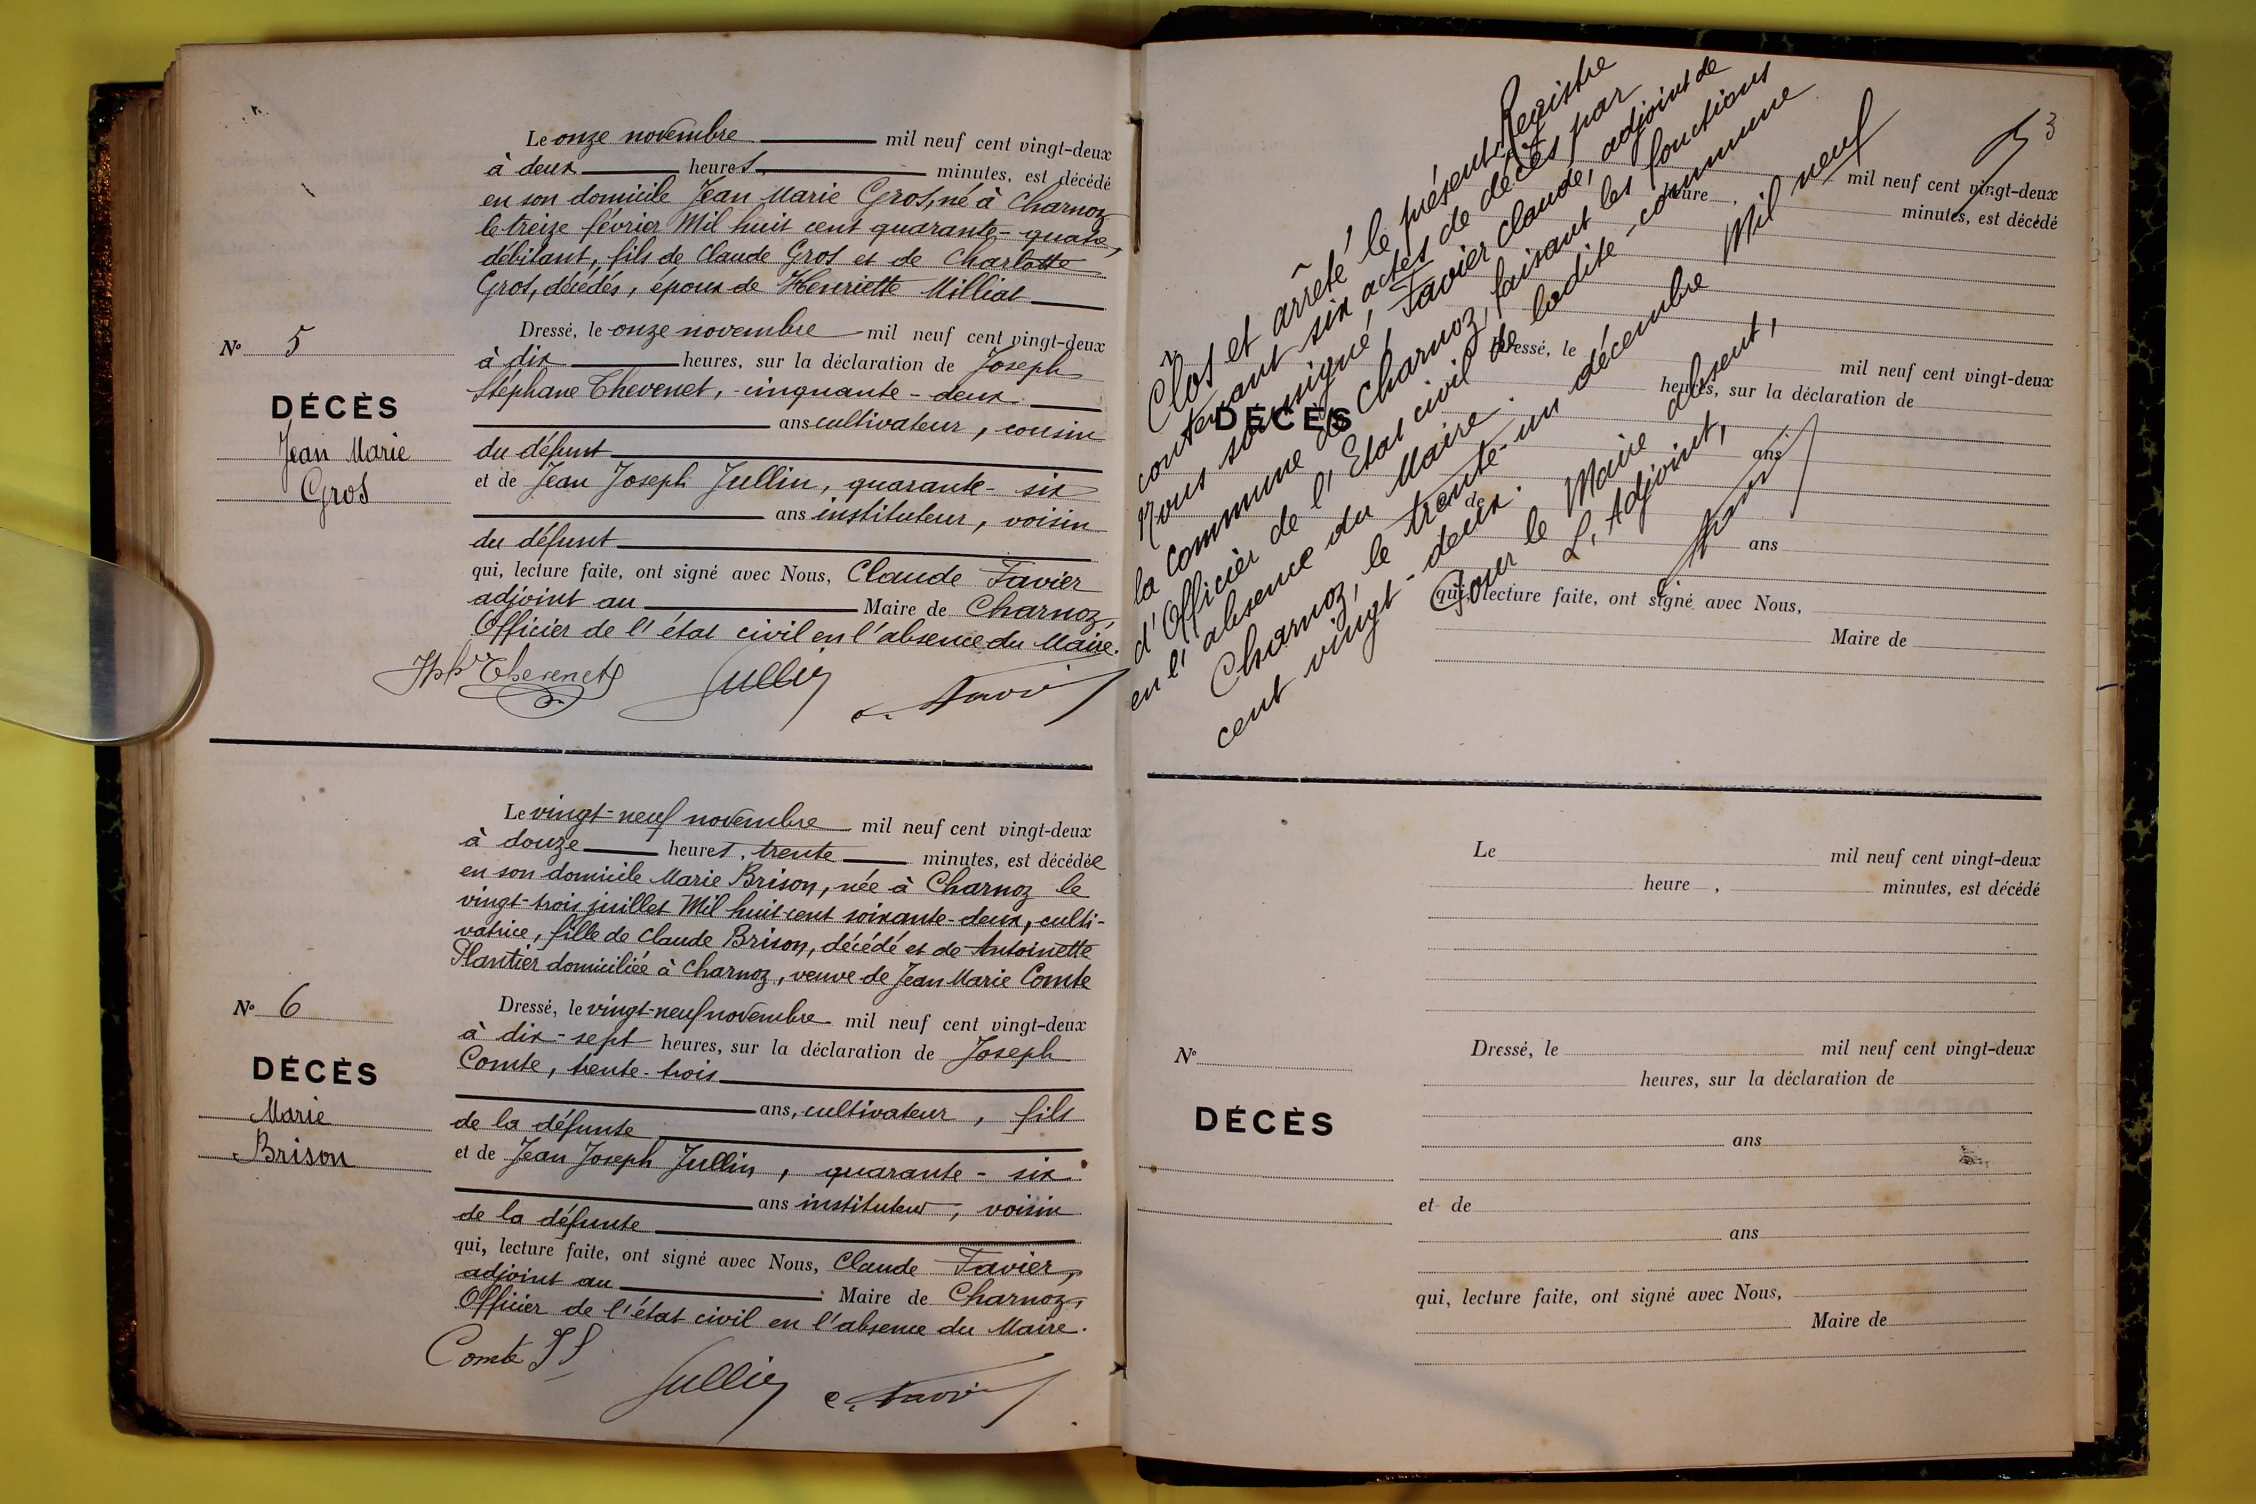 Le onze novembre mil neuf cent vingt-deux
à deux heures, minutes, est décédé
en son domicile Jean Marie Gros, né à Charnoz
le treize février Mil huit cent quarante-quatre,
débitant, fils de Claude Gros et de Charlotte
Gros, décédés, époux de Henriette Milliat
Dressé, le onze novembre mil neuf cent vingt-deux
à dix heures, sur la déclaration de Joseph
Stéphane Thevenet, cinquante-deux
ans cultivateur, cousin
du défunt
et de Jean Joseph Jullin, quarante-six
ans instituteur, voisin
du défunt
qui, lecture faite, ont signé avec Nous, Claude Favier
adjoint au Maire de Charnoz,
Officier de l'état civil en l'absence du Maire.
Thevenet Jullin C. Favier
N° 5
DÉCÈS
Jean Marie
Gros
Le vingt-neuf novembre mil neuf cent vingt-deux
à douze heures, trente minutes, est décédée
en son domicile Marie Brison, née à Charnoz le
vingt-trois juillet Mil huit cent soixante-deux, culti-
vatrice, fille de Claude Brison, décédé et de Antoinette
Plantier domiciliée à Charnoz, veuve de Jean Marie Comte
Dressé, le vingt-neuf novembre mil neuf cent vingt-deux
à dix-sept heures, sur la déclaration de Joseph
Comte, trente-trois
ans, cultivateur, fils
de la défunte
et de Jean Joseph Jullin, quarante-six
ans instituteur, voisin
de la défunte
qui, lecture faite, ont signé avec Nous, Claude Favier,
adjoint au Maire de Charnoz,
Officier de l'état civil en l'absence du Maire.
Comte Jullin C. Favier
N° 6
DÉCÈS
Marie
Brison
3
Clos et arrêté le présent Registre
contenant six actes de décès par
Nous soussigné, Favier Claude, adjoint de
la commune de Charnoz, faisant les fonctions
d'Officier de l'Etat civil de ladite commune
en l'absence du Maire.
Charnoz, le trente-un décembre Mil neuf
cent vingt-deux.
Pour le Maire absent,
L'Adjoint,
C. Favier
mil neuf cent vingt-deux
heure , minutes, est décédé
Dressé, le mil neuf cent vingt-deux
heures, sur la déclaration de
ans
de
ans
qui, lecture faite, ont signé avec Nous,
Maire de
N°
DÉCÈS
Le mil neuf cent vingt-deux
heure , minutes, est décédé
Dressé, le mil neuf cent vingt-deux
heures, sur la déclaration de
ans
et de
ans
qui, lecture faite, ont signé avec Nous,
Maire de
N°
DÉCÈS